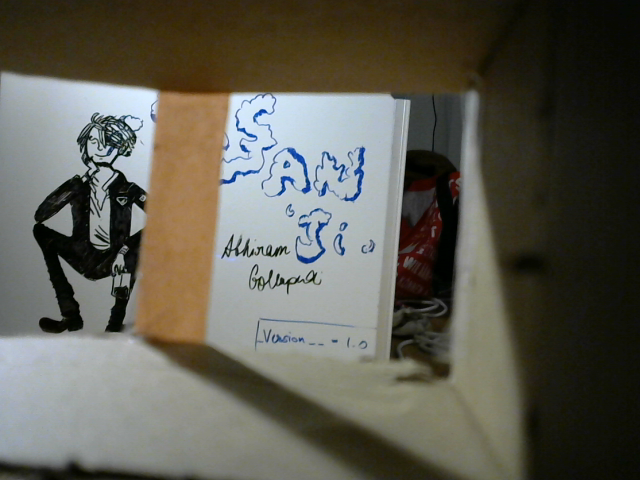 SAN
"Ji."
Abhiram
Gollapudi
_Version__ = 1.0